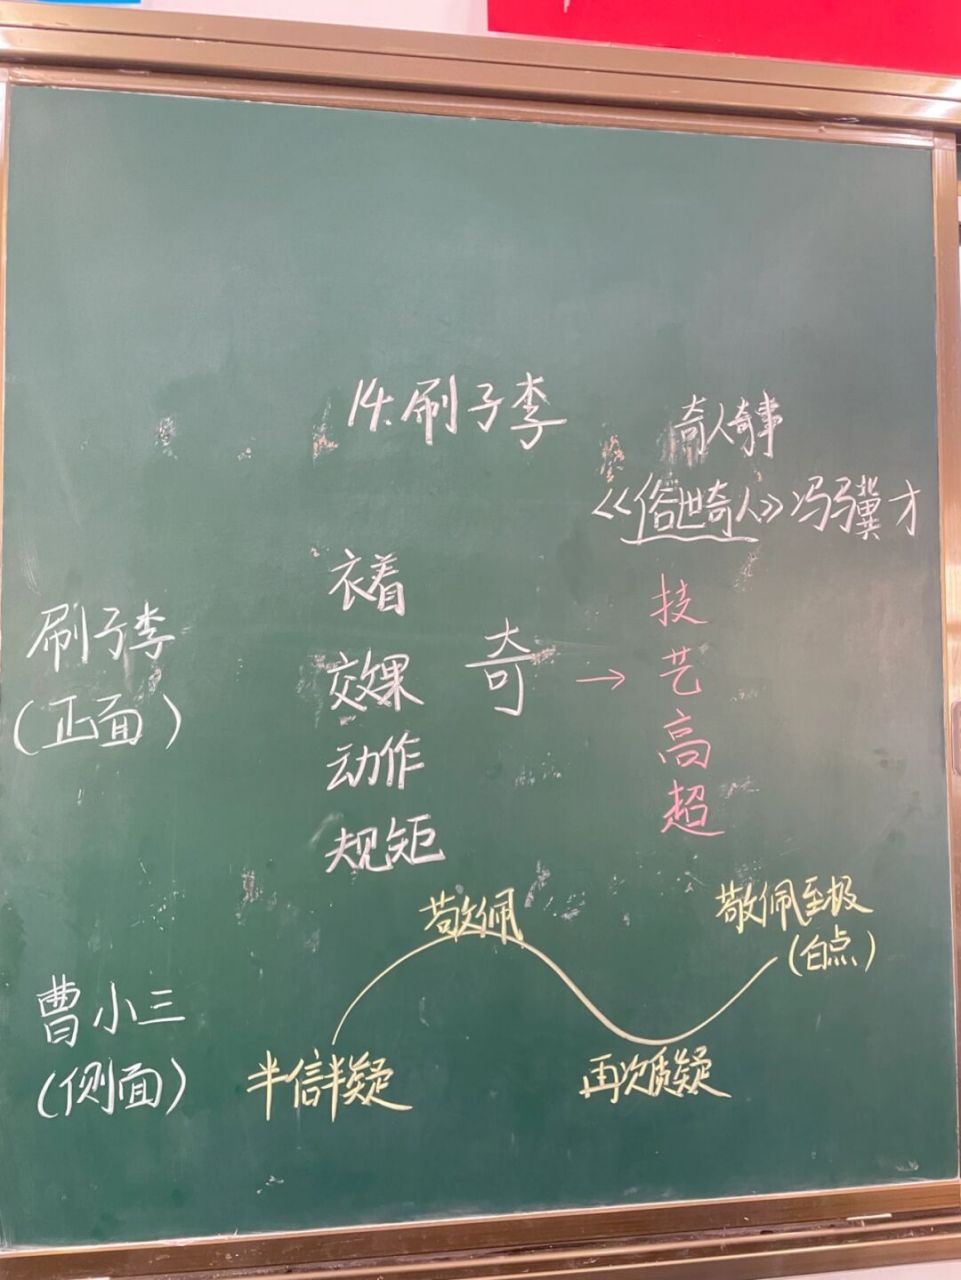 14.刷子李
奇人奇事
《俗世奇人》冯骥才
刷子李
(正面)
衣着
效果
动作
规矩
奇
→
技
艺
高
超
曹小三
(侧面)
半信半疑
敬佩
再次质疑
敬佩至极
(白点)